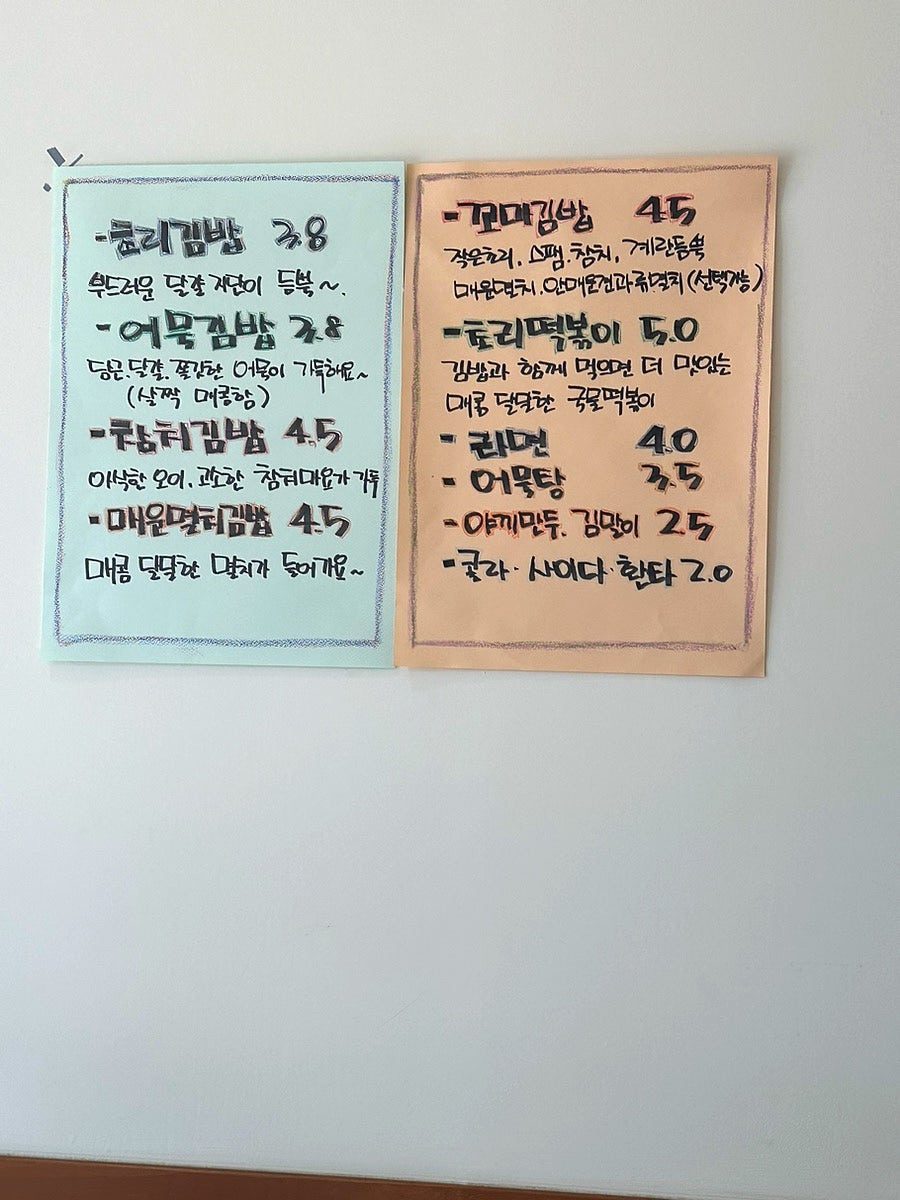 -토리김밥 3.8
부드러운 달걀지단이 듬뿍~.
-어묵김밥 3.8
당근.달걀.쫄깃한 어묵이 가득해요~
(살짝 매콤함)
-참치김밥 4.5
아삭한 오이. 고소한 참치마요가 가득
-매운멸치김밥 4.5
매콤 달달한 멸치가 들어가요~
-꼬마김밥 4.5
작은토리. 스팸.참치, 계란듬뿍
매운멸치.안매운견과류멸치(선택가능)
-토리떡볶이 5.0
김밥과 함께 먹으면 더 맛있는
매콤 달달한 국물떡볶이
-라면 4.0
-어묵탕 3.5
-야끼만두. 김말이 2.5
-콜라·사이다·환타 2.0